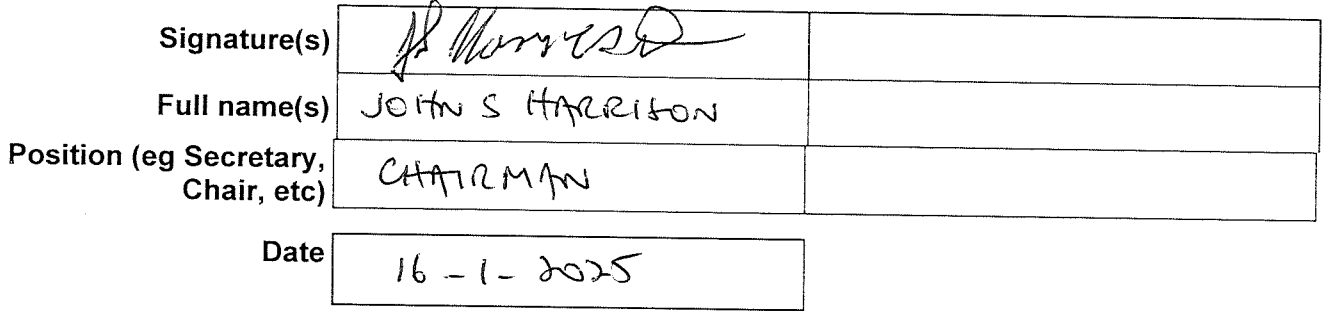 Signature(s)
Full name(s) JOHN S HARRISON
Position (eg Secretary,
Chair, etc) CHAIRMAN
Date 16-1-2025